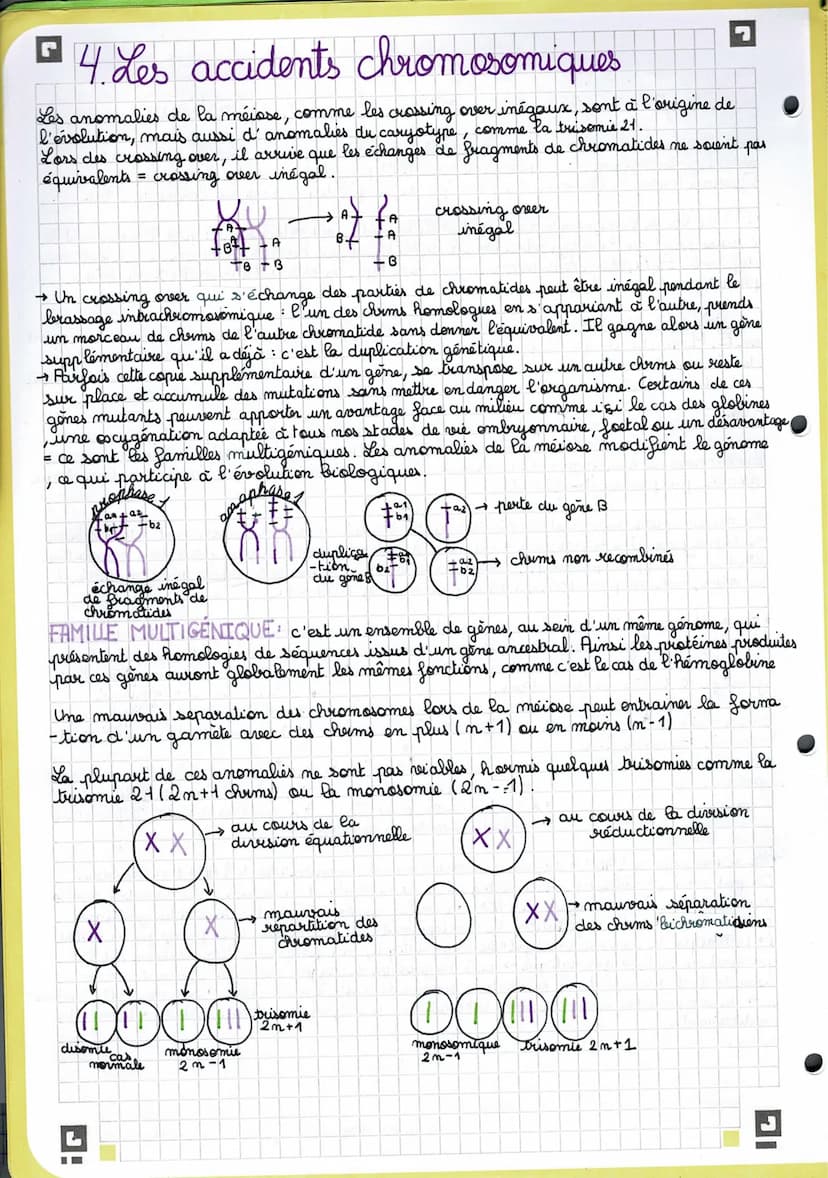 4. Les accidents chromosomiques
Les anomalies de la méiose, comme les crossing over inégaux, sont à l'origine de
l'évolution, mais aussi d'anomalies du caryotype, comme la trisomie 21.
Lors des crossing over, il arrive que les échanges de fragments de chromatides ne soient pas
équivalents = crossing over inégal.
A A B B A B
A B A A B
crossing over
inégal
→ Un crossing over qui s'échange des parties de chromatides peut être inégal pendant le
brassage intrachromosomique : l'un des chrms homologues en s'appariant à l'autre, prends
un morceau de chrms de l'autre chromatide sans donner l'équivalent. Il gagne alors un gène
supplémentaire qu'il a déjà : c'est la duplication génétique.
→ Parfois cette copie supplémentaire d'un gène, se transpose sur un autre chrms ou reste
sur place et accumule des mutations sans mettre en danger l'organisme. Certains de ces
gènes mutants peuvent apporter un avantage face au milieu comme ici le cas des globines
, une oxygénation adaptée à tous nos stades de vie embryonnaire, foetal ou un désavantage
= ce sont les familles multigéniques. Les anomalies de la méiose modifient le génome
, ce qui participe à l'évolution biologiques.
prophase 1
a1 a2
b1 b2
échange inégal
de fragments de
chromatides
anaphase 1
a1
b1
a2 → perte du gène B
duplica
-tion
du gène B
b2
a2
b2 → chrms non recombinés
FAMILLE MULTIGÉNIQUE : c'est un ensemble de gènes, au sein d'un même génome, qui
présentent des homologies de séquences issus d'un gène ancestral. Ainsi les protéines produites
par ces gènes auront globalement les mêmes fonctions, comme c'est le cas de l'hémoglobine
Une mauvais separation des chromosomes lors de la méiose peut entrainer la forma
-tion d'un gamète avec des chrms en plus (n+1) ou en moins (n-1)
La plupart de ces anomaliés ne sont pas viables, hormis quelques trisomies comme la
trisomie 21 (2n+1 chrms) ou la monosomie (2n-1).
→ au cours de la
division équationnelle
→ mauvais
repartition des
chromatides
trisomie
2n+1
disomie
cas
normale
monosomie
2n-1
→ au cours de la division
réductionnelle
→ mauvais séparation
des chrms bichromatidiens
monosomique
2n-1
trisomie 2n+1